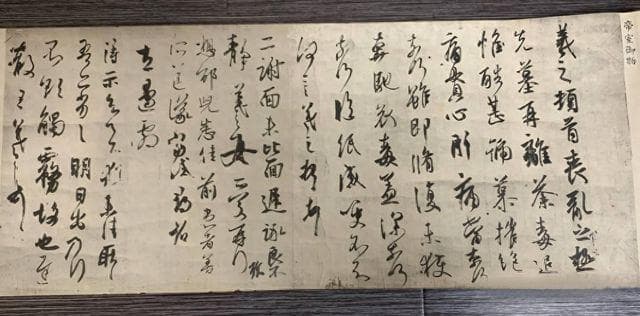 帝室御物
羲之頓首喪亂之極
先墓再離荼毒追
惟酷甚號慕摧絕
痛貫心肝痛當奈何
奈何雖即脩復未獲
奔馳哀毒益深奈何
奈何臨紙感哽不知
何言羲之頓首頓首
二謝面未比面遲詠良不
靜羲之女愛再拜
想邵兒悉佳前患者善
所送議當試尋省
左邊劇
得示知足下猶未佳耿耿
吾亦劣劣明日出乃行
不欲觸霧故也遲
散王羲之頓首